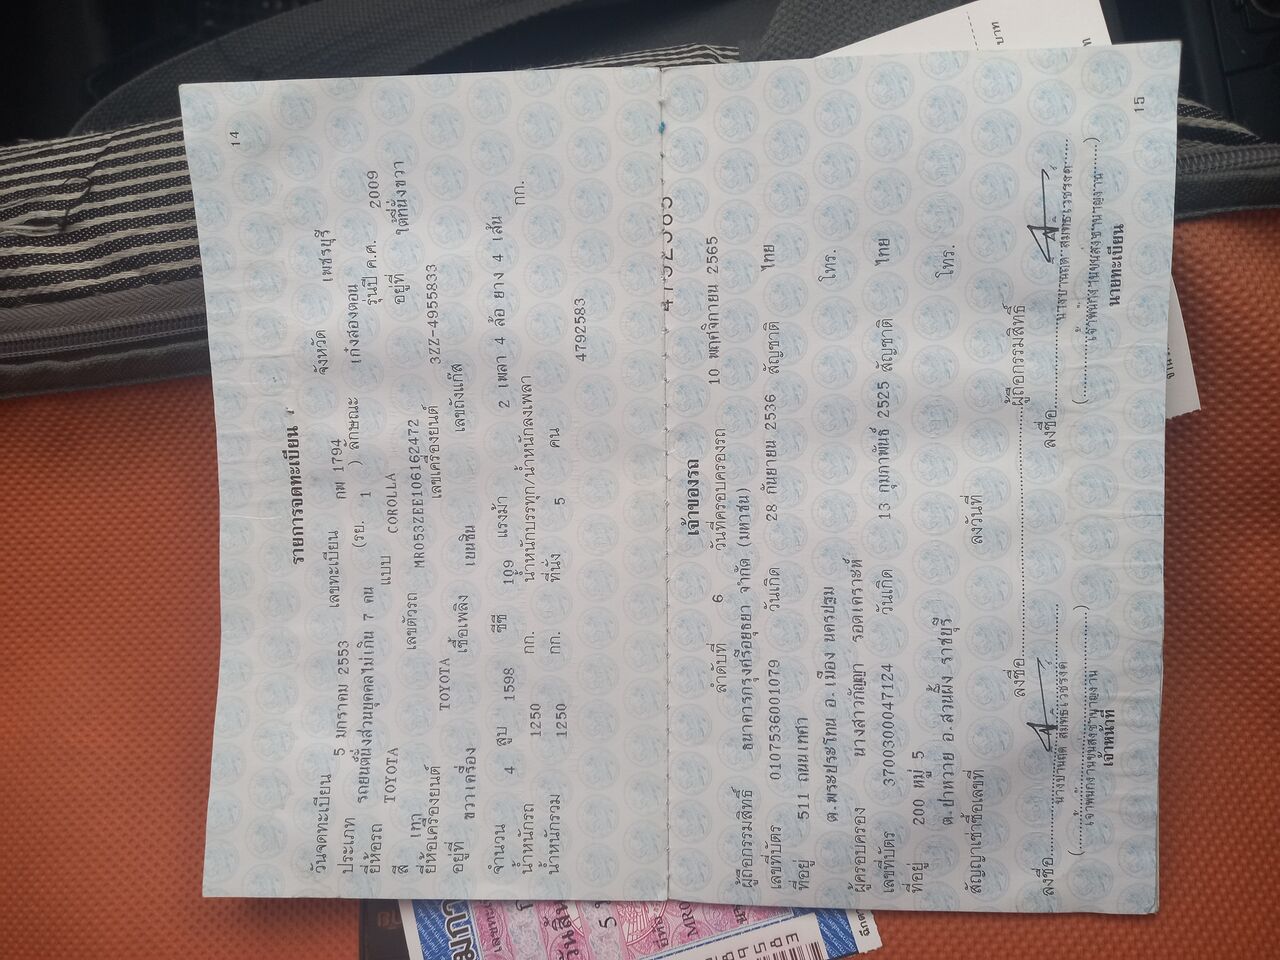 14
รายการจดทะเบียน
วันจดทะเบียน 5 มกราคม 2553 เลขทะเบียน กผ 1794 จังหวัด เพชรบุรี
ประเภท รถยนต์นั่งส่วนบุคคลไม่เกิน 7 คน (รย. 1 ) ลักษณะ เก๋งสองตอน
ยี่ห้อรถ TOYOTA แบบ COROLLA รุ่นปี ค.ศ. 2009
สี เทา เลขตัวรถ MR053ZEE106162472 อยู่ที่ ใต้ที่นั่งขวา
ยี่ห้อเครื่องยนต์ TOYOTA เลขเครื่องยนต์ 3ZZ-4955833
อยู่ที่ ขวาเครื่อง เชื้อเพลิง เบนซิน เลขถังแก๊ส
จำนวน 4 สูบ 1598 ซีซี 109 แรงม้า 2 เพลา 4 ล้อ ยาง 4 เส้น
น้ำหนักรถ 1250 กก. น้ำหนักบรรทุก/น้ำหนักลงเพลา กก.
น้ำหนักรวม 1250 กก. ที่นั่ง 5 คน
4792583
เจ้าของรถ
ลำดับที่ 6 วันที่ครอบครองรถ 10 พฤศจิกายน 2565
ผู้ถือกรรมสิทธิ์ ธนาคารกรุงศรีอยุธยา จำกัด (มหาชน)
เลขที่บัตร 0107536001079 วันเกิด 28 กันยายน 2536 สัญชาติ ไทย
ที่อยู่ 511 ถนนเทศา
ต.พระประโทน อ.เมือง นครปฐม โทร.
ผู้ครอบครอง นางสาวกัญญา รอดเคราะห์
เลขที่บัตร 3700300047124 วันเกิด 13 กุมภาพันธ์ 2525 สัญชาติ ไทย
ที่อยู่ 200 หมู่ 5
ต.ป่าหวาย อ.สวนผึ้ง ราชบุรี โทร.
สัญญาเช่าซื้อเลขที่ ลงวันที่
ลงชื่อ ผู้ถือกรรมสิทธิ์
ลงชื่อ ลงชื่อ
เจ้าพนักงานขนส่งชำนาญงาน เจ้าพนักงานขนส่งชำนาญงาน
เจ้าหน้าที่ นายทะเบียน
15
บาท